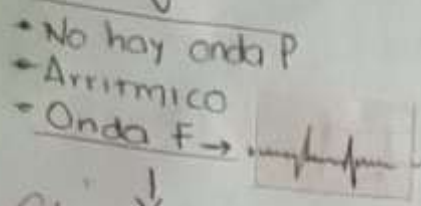 - No hay onda P
- Arritmico
- Onda F →